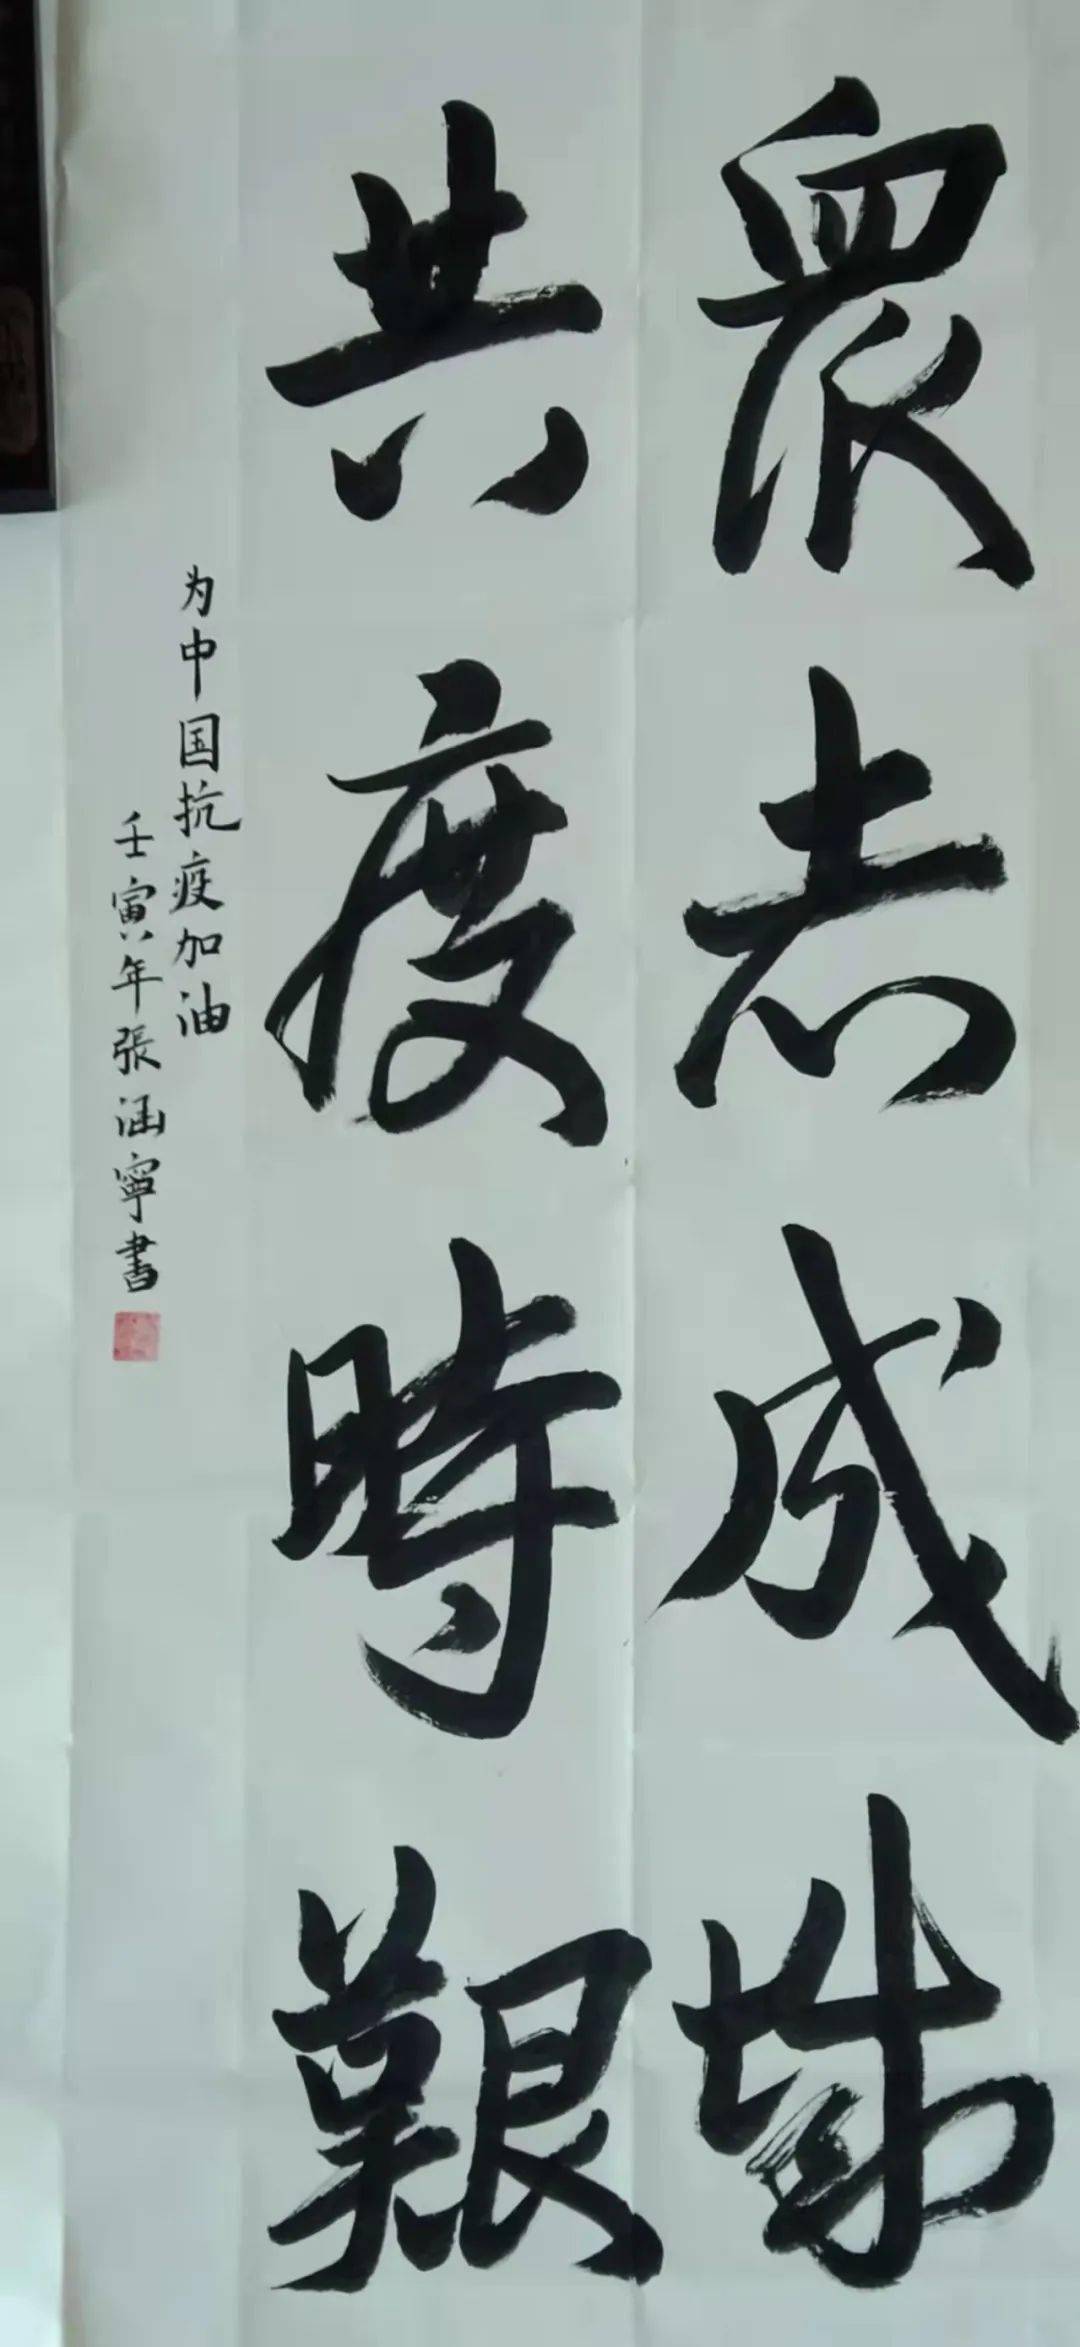 衆志成城
共度時艱
为中国抗疫加油
壬寅年張涵寧書